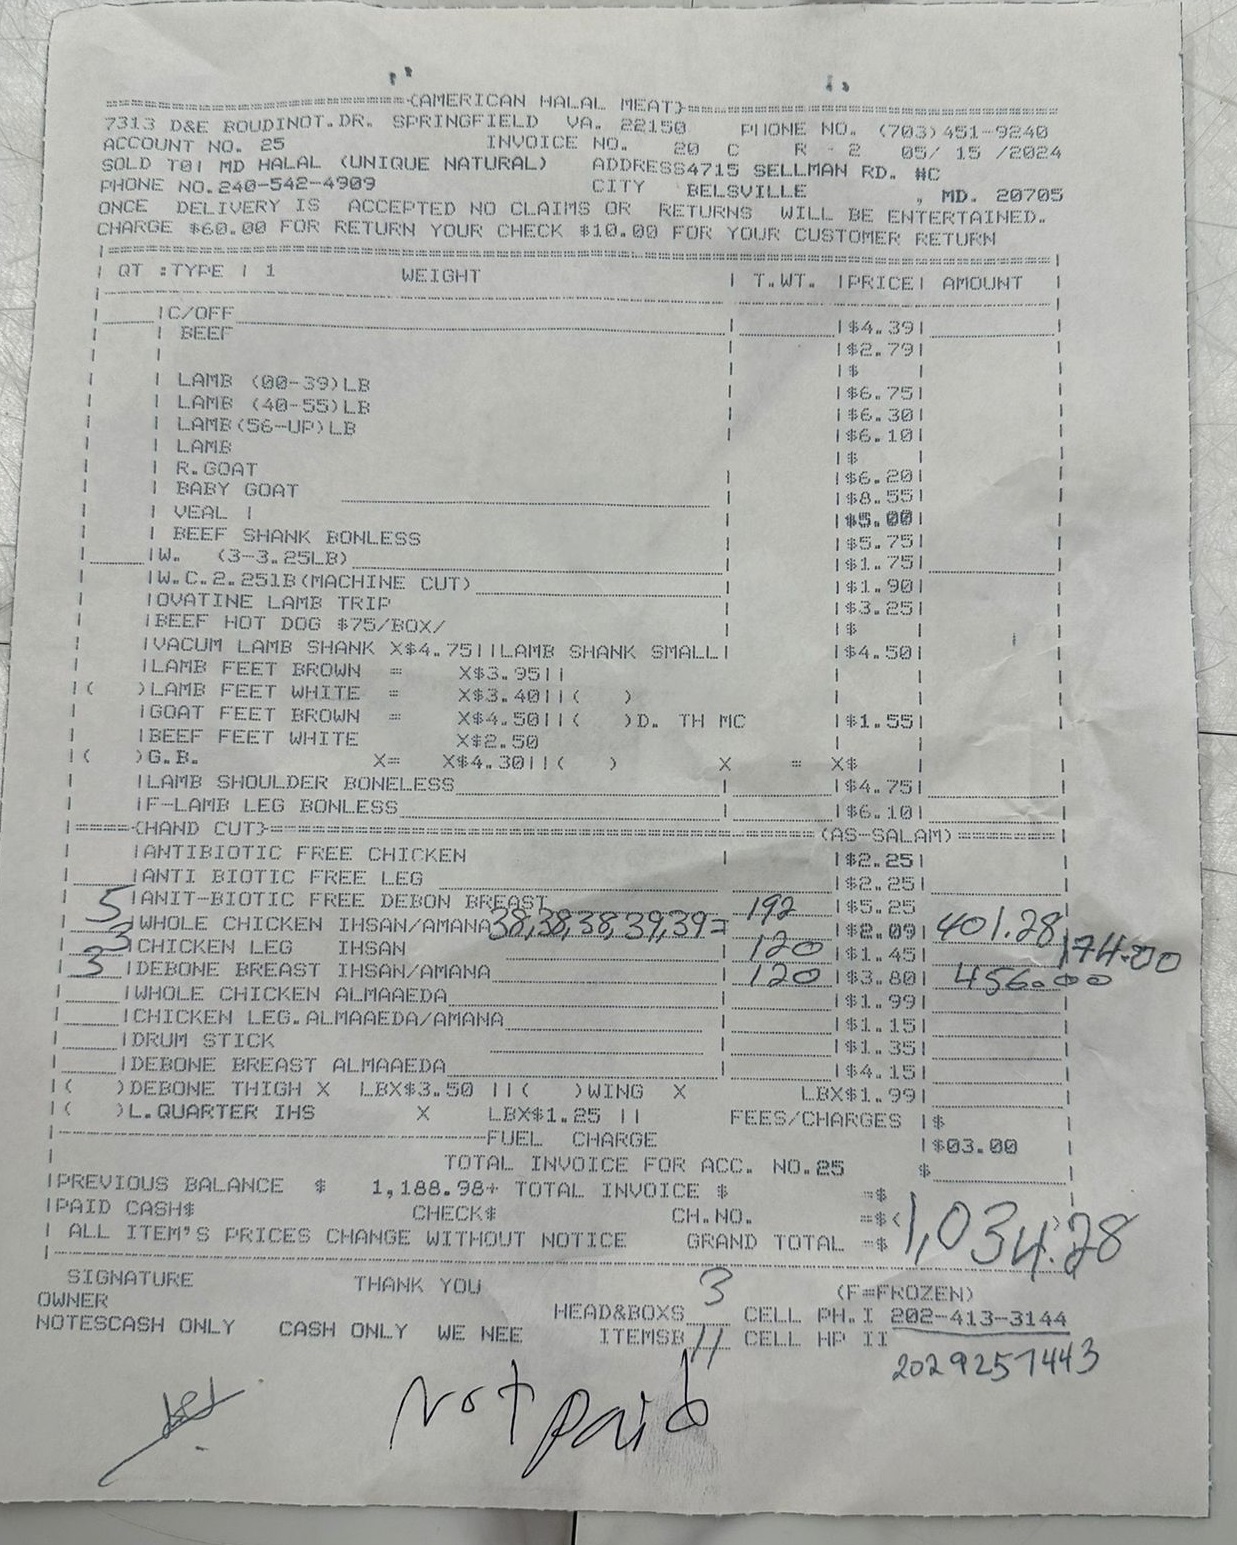 (AMERICAN HALAL MEAT)
7313 D&E BOUDINOT.DR. SPRINGFIELD VA. 22150 PHONE NO. (703)451-9240
ACCOUNT NO. 25 INVOICE NO. 20 C R - 2 05/ 15 /2024
SOLD TO: MD HALAL (UNIQUE NATURAL) ADDRESS4715 SELLMAN RD. #C
PHONE NO.240-542-4909 CITY BELSVILLE , MD. 20705
ONCE DELIVERY IS ACCEPTED NO CLAIMS OR RETURNS WILL BE ENTERTAINED.
CHARGE $60.00 FOR RETURN YOUR CHECK $10.00 FOR YOUR CUSTOMER RETURN
QT :TYPE | 1 WEIGHT | T.WT. |PRICE| AMOUNT |
|C/OFF |$4.39|
| BEEF |$2.79|
|$ |
| LAMB (00-39)LB |$6.75|
| LAMB (40-55)LB |$6.30|
| LAMB(56-UP)LB |$6.10|
| LAMB |$
| R.GOAT |$6.20|
| BABY GOAT |$8.55|
| VEAL | |$5.00|
| BEEF SHANK BONLESS |$5.75|
|W. (3-3.25LB) |$1.75|
|W.C.2.25lB(MACHINE CUT) |$1.90|
|OVATINE LAMB TRIP |$3.25|
|BEEF HOT DOG $75/BOX/ |$ |
|VACUM LAMB SHANK X$4.75||LAMB SHANK SMALL| |$4.50|
|LAMB FEET BROWN = X$3.95||
|( )LAMB FEET WHITE = X$3.40||( )
|GOAT FEET BROWN = X$4.50||( )D. TH MC |$1.55|
|BEEF FEET WHITE X$2.50
|( )G.B. X= X$4.30||( ) X = X$ |
|LAMB SHOULDER BONELESS |$4.75|
|F-LAMB LEG BONLESS |$6.10|
(HAND CUT) (AS-SALAM)
|ANTIBIOTIC FREE CHICKEN |$2.25|
|ANTI BIOTIC FREE LEG |$2.25|
|ANIT-BIOTIC FREE DEBON BREAST |$5.25
5 |WHOLE CHICKEN IHSAN/AMANA 38,38,38,39,39= 192 |$2.09| 401.28
3 |CHICKEN LEG IHSAN 120 |$1.45| 174.00
3 |DEBONE BREAST IHSAN/AMANA 120 |$3.80| 456.00
|WHOLE CHICKEN ALMAAEDA |$1.99|
|CHICKEN LEG.ALMAAEDA/AMANA |$1.15|
|DRUM STICK |$1.35|
|DEBONE BREAST ALMAAEDA |$4.15|
|( )DEBONE THIGH X LBX$3.50 ||( )WING X LBX$1.99|
|( )L.QUARTER IHS X LBX$1.25 || FEES/CHARGES |$
FUEL CHARGE |$03.00
TOTAL INVOICE FOR ACC. NO.25 $
|PREVIOUS BALANCE $ 1,188.98+ TOTAL INVOICE $ =$
|PAID CASH$ CHECK$ CH.NO. =$<
| ALL ITEM'S PRICES CHANGE WITHOUT NOTICE GRAND TOTAL =$ 1,034.28
SIGNATURE THANK YOU (F=FROZEN)
OWNER HEAD&BOXS 3 CELL PH.I 202-413-3144
NOTESCASH ONLY CASH ONLY WE NEE ITEMSB 11 CELL HP II
2029257443
Not paid